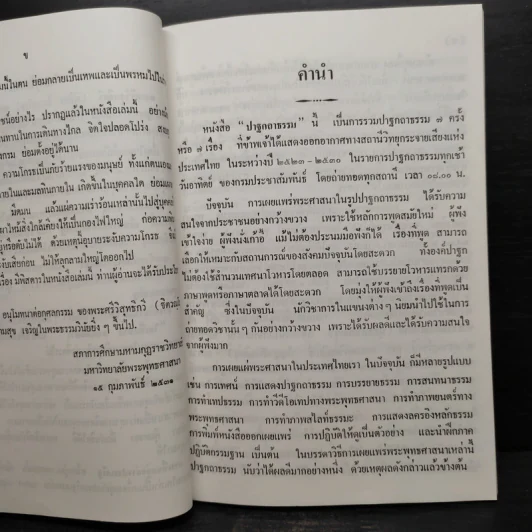 ข
นี้ในตน ย่อมกลายเป็นเทพและเป็นพรหมไปในตัว
ชน์อย่างไร ปรากฏแล้วในหนังสือเล่มนี้ อย่าง
นทานในการเดินทางไกล จิตใจปลอดโปร่ง
กรม ย่อมตั้งอยู่ได้นาน
ความโกรธเป็นภัยร้ายแรงของมนุษย์ ทั้งแก่ตนเอง
ายในและมลทินภายใน เกิดขึ้นในบุคคลใด ย่อม
มืดมน แล้วแผ่ความเร่าร้อนเหล่านั้นไปสู่
ผาให้มีสิ่งใกล้เคียงให้เป็นกองไฟใหญ่ ก่อความ
หรือดับไม่ได้ ด้วยเหตุนี้อุบายระงับความโกรธ
ังเสียก่อน ไม่ให้ลุกลามใหญ่โตออกไป
เรื่อง วิเศษในหนังสือเล่มนี้ ท่านผู้อ่านจะได้รับประโยชน์
อนุโมทนาต่อกุศลกรรม ของพระศรีวิสุทธิกวี
ามสุข เจริญในพระธรรมวินัยยิ่ง ๆ ขึ้นไป.
สภาการศึกษามหามกุฏราชวิทยาลัย
มหาวิทยาลัยพระพุทธศาสนา
๑๕ กุมภาพันธ์ ๒๕๓๑
คำนำ
หนังสือ “ปาฐกถาธรรม” นี้ เป็นการรวมปาฐกถาธรรม ๗ ครั้ง
หรือ ๗ เรื่อง ที่ข้าพเจ้าได้แสดงออกอากาศทางสถานีวิทยุกระจายเสียงแห่ง
ประเทศไทย ในระหว่างปี ๒๕๒๓ - ๒๕๓๐ ในรายการปาฐกถาธรรมทุกเช้า
วันอาทิตย์ ของกรมประชาสัมพันธ์ โดยถ่ายทอดทุกสถานี เวลา ๐๘.๓๐ น.
ปัจจุบัน การเผยแผ่พระศาสนาในรูปปาฐกถาธรรม ได้รับความ
สนใจจากประชาชนอย่างกว้างขวาง เพราะใช้หลักการพูดสมัยใหม่ ผู้ฟัง
เข้าใจง่าย ผู้ฟังนั่งเก้าอี้ แม้ไม่ต้องประนมมือฟังก็ได้ เรื่องที่พูด สามารถ
เลือกให้เหมาะกับสถานการณ์ของสังคมปัจจุบันโดยสะดวก ทั้งองค์ปาฐก
ไม่ต้องใช้สำนวนเทศนาโวหารโดยตลอด สามารถใช้บรรยายโวหารแทรกด้วย
ภาษาพูดหรือภาษาตลาดได้โดยสะดวก โดยมุ่งให้ผู้ฟังเข้าถึงเรื่องที่พูดเป็น
สำคัญ ซึ่งในปัจจุบัน นักวิชาการในแขนงต่าง ๆ นิยมนำไปใช้ในการ
ถ่ายทอดวิชานั้น ๆ กันอย่างกว้างขวาง เพราะได้รับผลดีและได้รับความสนใจ
จากผู้ฟังมาก
การเผยแผ่พระศาสนาในประเทศไทยเรา ในปัจจุบัน ก็มีหลายรูปแบบ
เช่น การเทศน์ การแสดงปาฐกถาธรรม การบรรยายธรรม การสนทนาธรรม
การทำเทปธรรม การทำวีดีโอเทปทางพระพุทธศาสนา การทำภาพยนตร์ทาง
พระพุทธศาสนา การทำภาพสไลด์ที่ธรรมะ การแสดงละครอิงหลักธรรม
การพิมพ์หนังสือออกเผยแพร่ การปฏิบัติให้ดูเป็นตัวอย่าง และนำฝึกภาค
ปฏิบัติกรรมฐาน เป็นต้น ในบรรดาวิธีการเผยแผ่พระพุทธศาสนาเหล่านี้
ปาฐกถาธรรม นับว่าได้ผลดีมากอย่างหนึ่ง ด้วยเหตุผลดังกล่าวแล้วข้างต้น